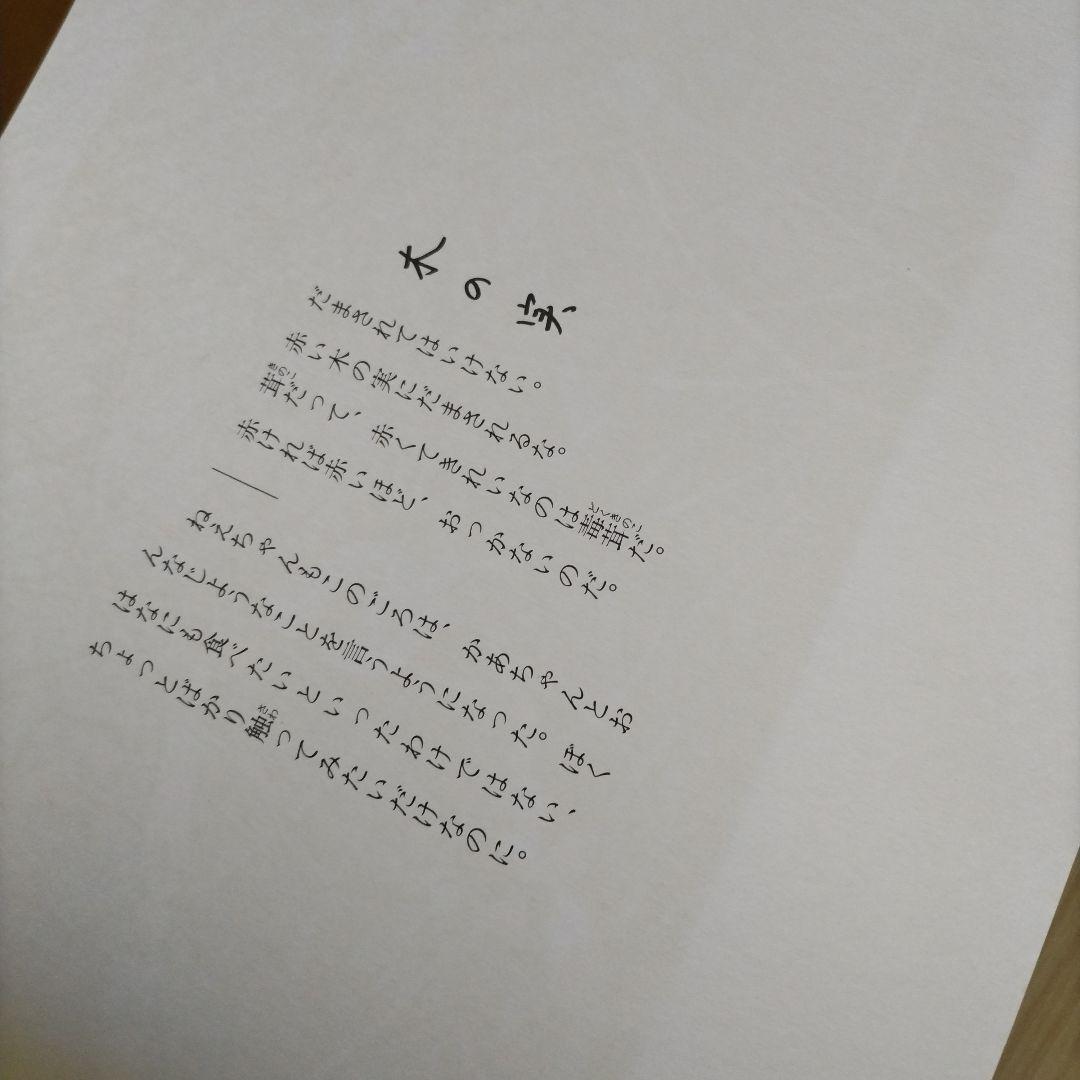 木の実
だまされてはいけない。
赤い木の実にだまされるな。
きのこ　どくきのこ
茸だって、赤くてきれいなのは毒茸だ。
赤ければ赤いほど、おっかないのだ。
――
ねえちゃんもこのごろは、かあちゃんとお
んなじようなことを言うようになった。ぼく
はなにも食べたいといったわけではない、
さわ
ちょっとばかり触ってみたいだけなのに。